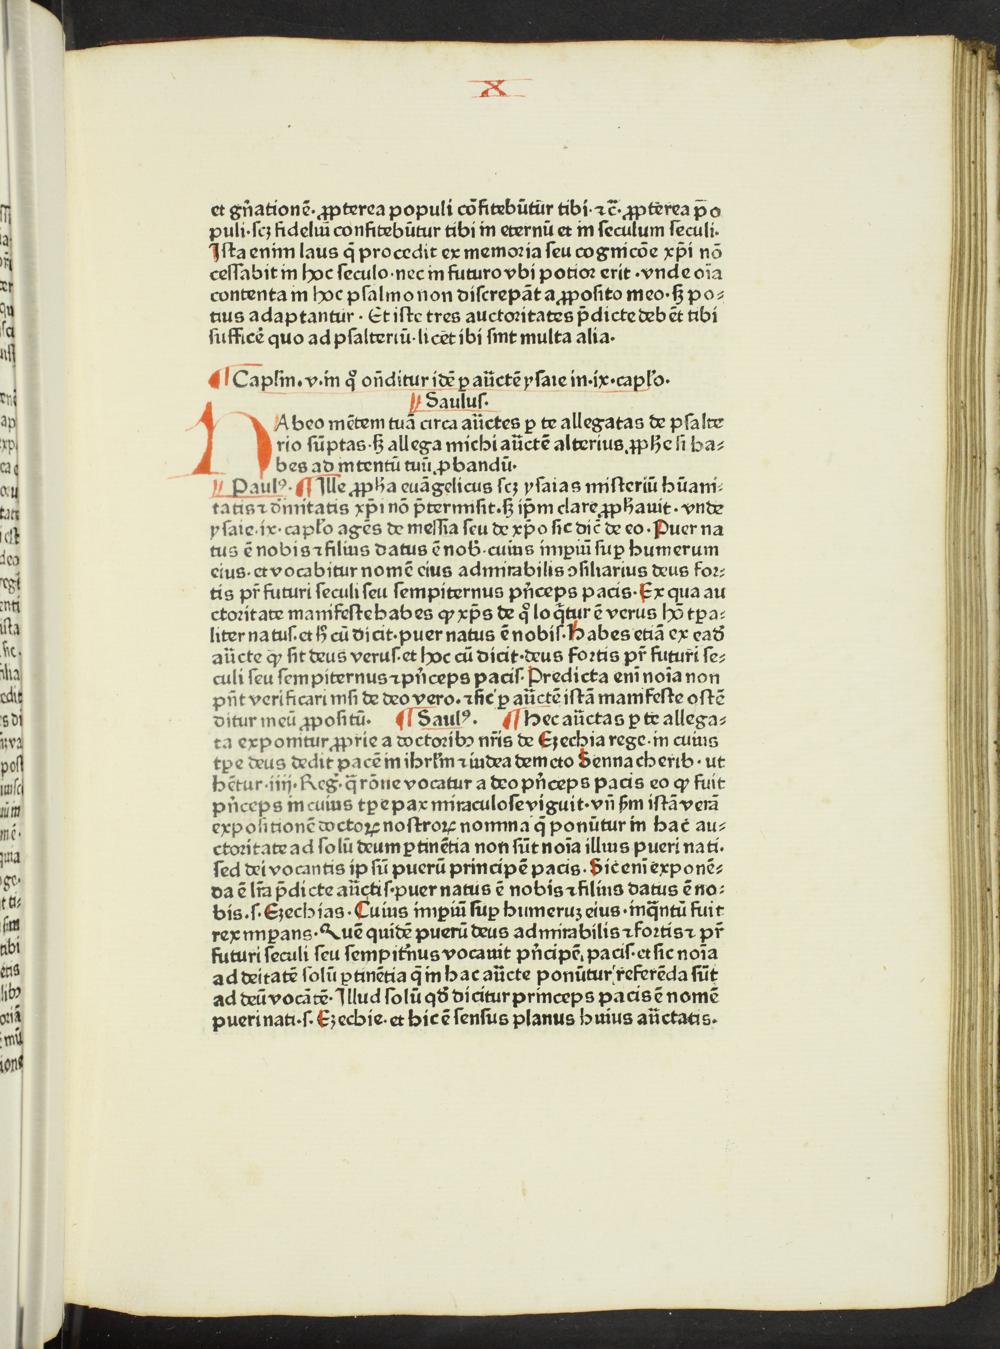 X
et gñationē· ꝓpterea populi cōfitebūtur tibi· ⁊ c̄· ꝓpterea p̄o
puli· scꝫ fideliū confitebūtur tibi in eternū et in seculum seculi·
Ista enim laus q̄ procedit ex memoria seu cognicōe xp̄i nō
cessabit in hoc seculo· nec in futuro vbi potior erit · vnde oīa
contenta in hoc psalmo non discrepāt a ꝓposito meo· sꝫ po⸗
tius adaptantur · Et iste tres auctoritates p̄dicte debēt tibi
sufficē quo ad psalteriū· licet ibi sint multa alia·
¶ Capl'm· v· in q° on̄ditur idē ꝑ auc̄tē ysaie in· ix· capl'o·
Saulus·
HAbeo mētem tuā circa auc̄tes ꝑ te allegatas de psalte
rio sūptas· sꝫ allega michi auc̄tē alterius ꝓphe si ha⸗
bes ad intentū tuū ꝓbandū·
Paulꝰ· ¶ Ille ꝓpha euāgelicus scꝫ ysaias misteriū hūani⸗
tatis ⁊ diuinitatis xp̄i nō p̄termisit· sꝫ ip̄m clare ꝓphauit · vnde
ysaie· ix· capl'o agēs de messia seu de xp̄o sic dic̄ de eo· Puer na
tus ē nobis ⁊ filius datus ē nob̄· cuius imp̄iū sup̄ humerum
eius· et vocabitur nomē eius admirabilis ↄsiliarius deus for⸗
tis pr̄ futuri seculi seu sempiternus pn̄ceps pacis· Ex qua au
ctoritate manifeste habes ꝙ xp̄s de q° loq̄tur ē verus hō tp̄a⸗
liter natus· et h̄ cū dicit· puer natus ē nobis· Habes etiā ex eadē
auc̄te ꝙ sit deus verus· et hoc cū dicit· deus fortis pr̄ futuri se⸗
culi seu sempiternus ⁊ pn̄ceps pacis· Predicta eni noīa non
pn̄t verificari nisi de deo vero· ⁊ sic ꝑ auc̄tē istā manifeste ostē
ditur meū ꝓpositū· ¶ Saulꝰ· ¶ Hec auc̄tas ꝑ te allega⸗
ta exponitur ꝓprie a doctoribꝫ nr̄is de Ezechia rege· in cuius
tp̄e deus dedit pacē in ihrl'm ⁊ iudea demcto Sennacherib · ut
hētur· iiii· Reg· q̄ rōne vocatur a deo pn̄ceps pacis eo ꝙ fuit
pn̄ceps in cuius tp̄e pax miraculose viguit· vn̄ s̄m istā verā
expositionē doctoꝝ nostroꝝ nomina q̄ ponūtur in hac au⸗
ctoritate ad solū deum ꝑtinētia non sūt noīa illius pueri nati·
sed dei vocantis ipsū puerū principē pacis· Sic eni exponē⸗
da ē lr̄a p̄dicte auc̄tis· puer natus ē nobis ⁊ filius datus ē no⸗
bis· s· Ezechias· Cuius imp̄iū sup̄ humeruꝫ eius· inq̄ntū fuit
rex imp̄ans· Quē quidē puerū deus admirabilis ⁊ fortis ⁊ pr̄
futuri seculi seu sempit̄nus vocauit pn̄cipē pacis· et sic noīa
ad deitatē solū ꝑtinētia q̄ in hac auc̄te ponūtur referēda sūt
ad deū vocātē· Illud solū qd̄ dicitur princeps pacis ē nomē
pueri nati· s· Ezechie· et hic ē sensus planus huius auc̄tatis·